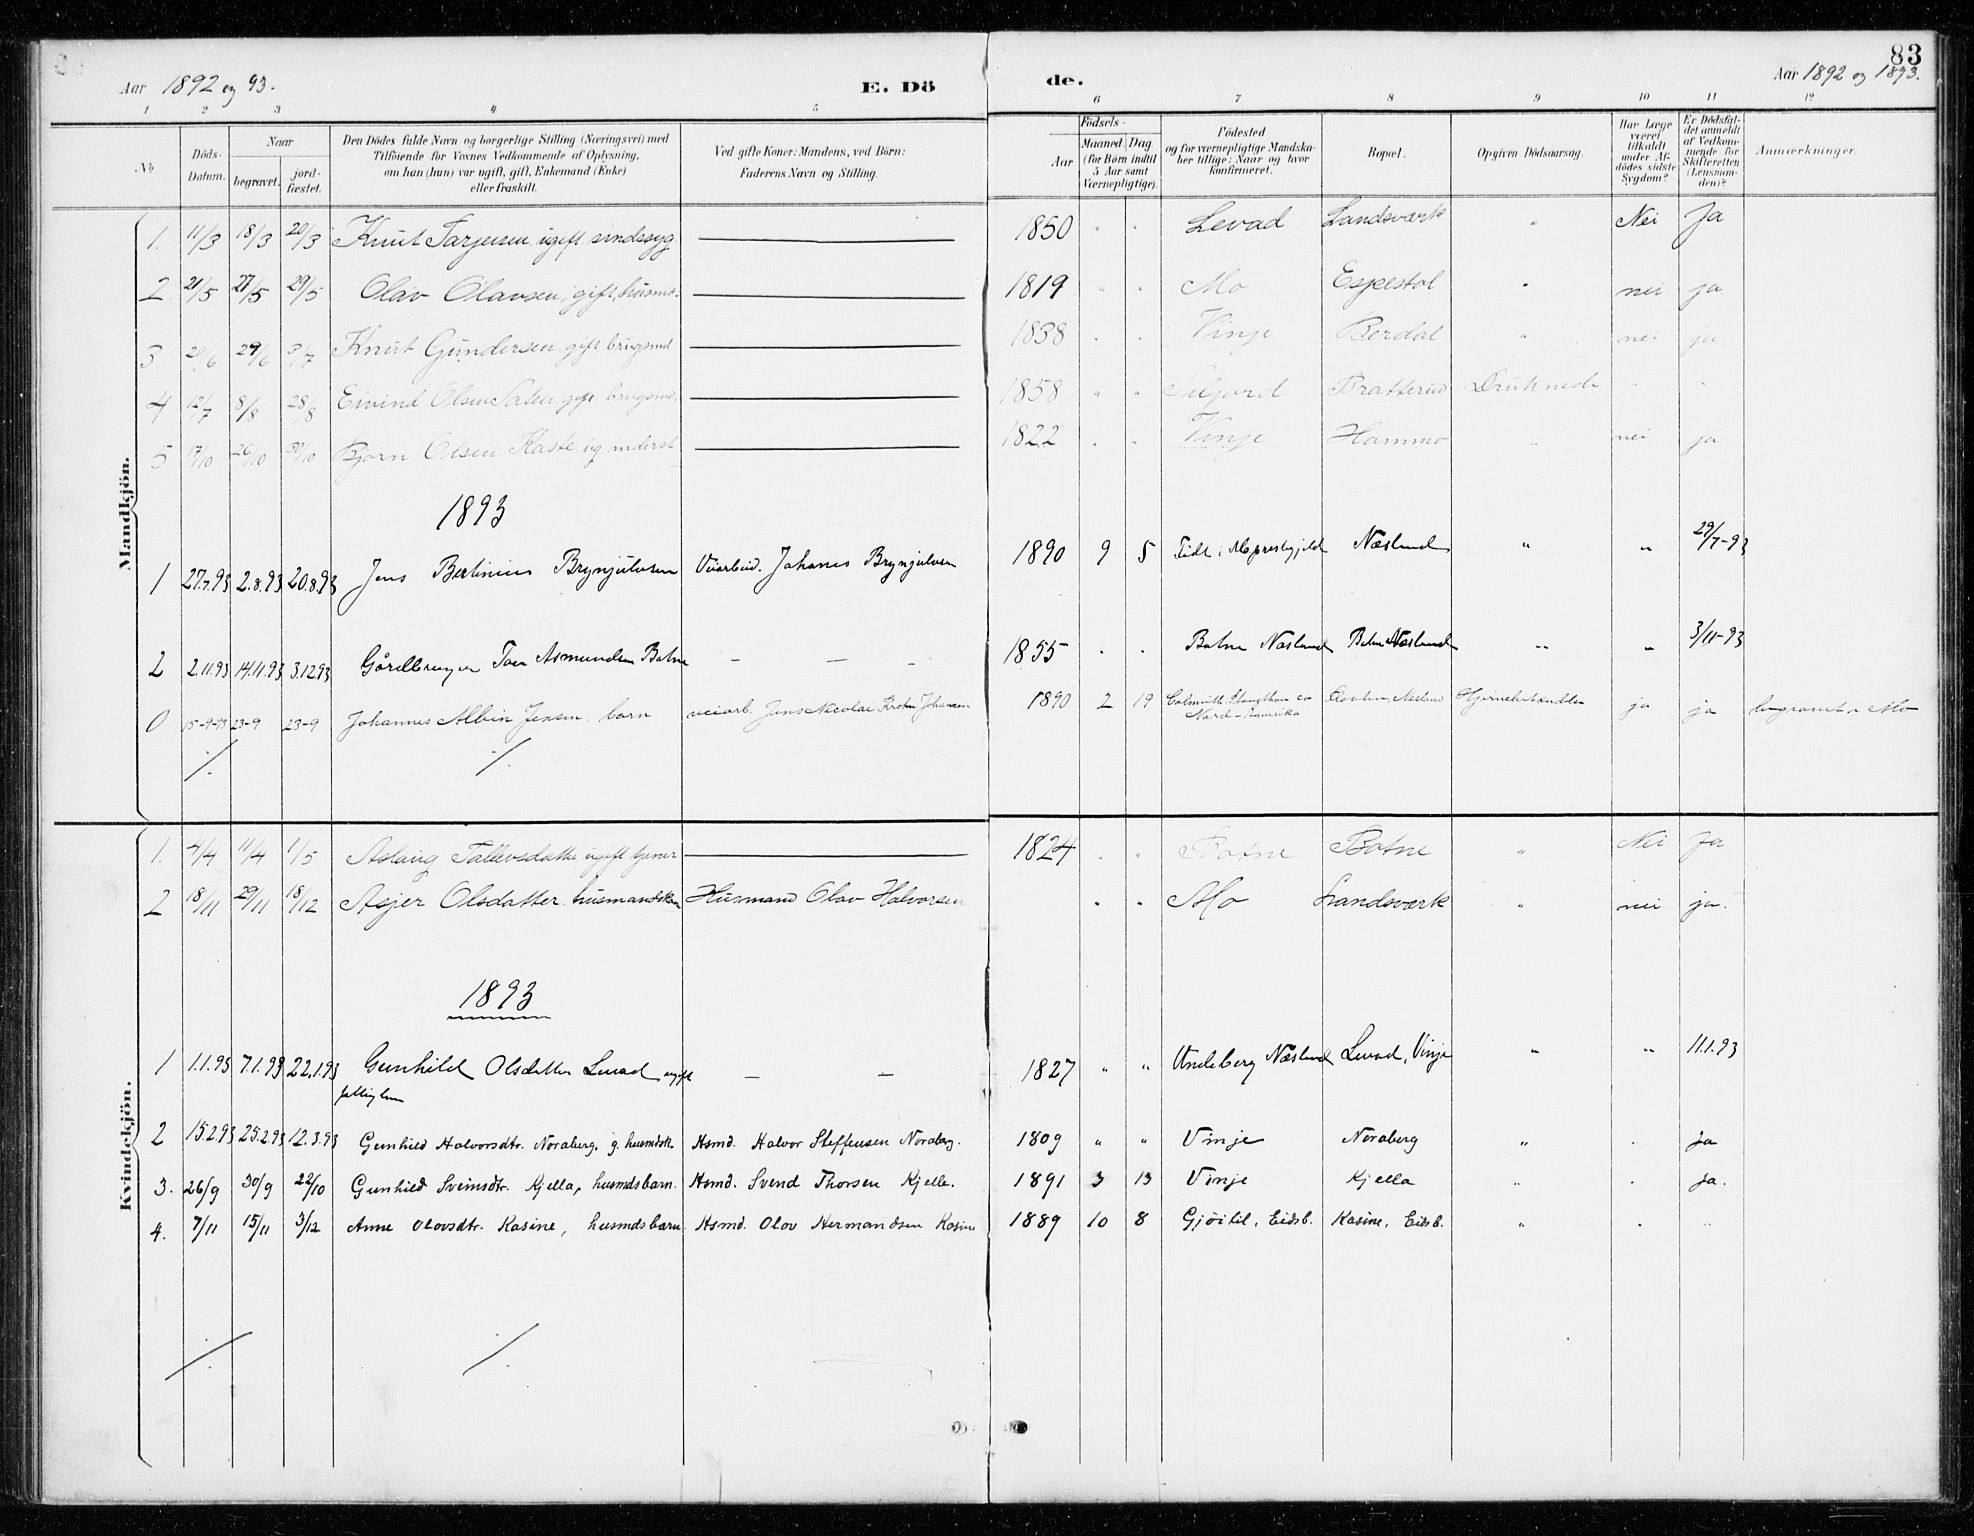 83
Aar 1892 og 93.
E. Dö
de.
Aar 1892 og 1893.
1 2 3 4 5 6 7 8 9 10 11 12
No
Döds-Datum.
Naar
begravet.
jordfæstet.
Den Dödes fulde Navn og borgerlige Stilling (Næringsvei) med
Tilföiende for Voxnes Vedkommende af Oplysning,
om han (hun) var ugift, gift, Enkemand (Enke)
eller fraskilt.
Ved gifte Koner: Mandens, ved Börn:
Faderens Navn og Stilling.
Födsels-
Aar
Maaned. Dag.
(for Börn indtil
5 Aar samt
Værnepligtige).
Födested
og for værnepligtige Mandska-
ber tillige: Naar og hvor
konfirmeret.
Bopæl.
Opgiven Dödsaarsag.
Har Læge
været
tilkaldt
under Af-
dödes sidste
Sygdom?
Er Dödsfal-
det anmeldt
af Vedkom-
mende for
Skifteretten
(Lensman-
den)?
Anmærkninger.
Mandkjön.
1. 11/3 18/3 20/3 Knut Tarjeisen ugift sindssyg 1850 " " Levad Landsværk " Nei Ja
2. 21/5 27/5 29/5 Olav Olavsen, gift, husmd. 1819 " " Mo Espestol " nei ja
3 20/6 29/6 3/7 Knut Gundersen gift brugsmd 1838 " " Vinje Berdal " nei ja
4 12/7 8/8 28/8 Eivind Olsen gift brugsmd. 1858 " " Siljord Bratterud Druknede " "
5 17/10 26/10 30/10 Bjørn Olsen Kaste ug. inderst 1822 " " Vinje Hammo " nei ja
1893
1 27.7.93 2.8.93 20.8.93 Jens Bertinius Brynjulvsen Veiarbeid. Johanes Brynjulvsen 1890 9 5 Født i Næsland " " 29/7-93
2 2.11.93 14.11.93 3.12.93 Gårdbruger Tor Asmundsen Botne – – – 1855 . . Botne Næsland Botne Næsland " " 3/11-93
0 15-9-93 23-9 23-9 Johannes Albin Jensen, barn veiarb. Jens Nicolai Krohn Johansen 1890 2 19
Nord-Amerika Næsland Hjernebetændelse ja ja begravet v. Mo
·/. ·/.
Kvindekjön.
1. 4/4 11/4 1/5 Aslaug Tallevsdatter ugift tjener 1824 " " Botne Botne " Nei Ja
2 18/11 29/11 18/12 Asjer Olsdatter husmandskone Husmand Olav Halvorsen " " Mo Landsværk " nei ja.
1893
1 1.1.93 7.1.93 22.1.93 Gunhild Olsdatter Levad ugift – – 1827 " " Undeberg Næsland Levad, Vinje " " 11.1.93
fattiglem
2 15.2.93 25.2.93 12.3.93 Gunhild Halvorsdtr. Noraberg, g. husmdsk. Hsmd. Halvor Steffensen Noraberg. 1809 " " Vinje Noraberg " . ja
3. 26/9 30/9 22/10 Gunhild Sveinsdtr. Kjella, husmdsbarn. Hsmd. Svend Thorsen Kjella. 1891 3 13 Vinje Kjella " . ja.
4. 7/11 15/11 3/12 Anne Olovsdtr. Kasine, husmdsbarn. Hsmd. Olov Hermandsen Kasine 1889 10 8 Gjøitil, Eidsb. Kasine, Eidsb. " . "
·/. ·/.